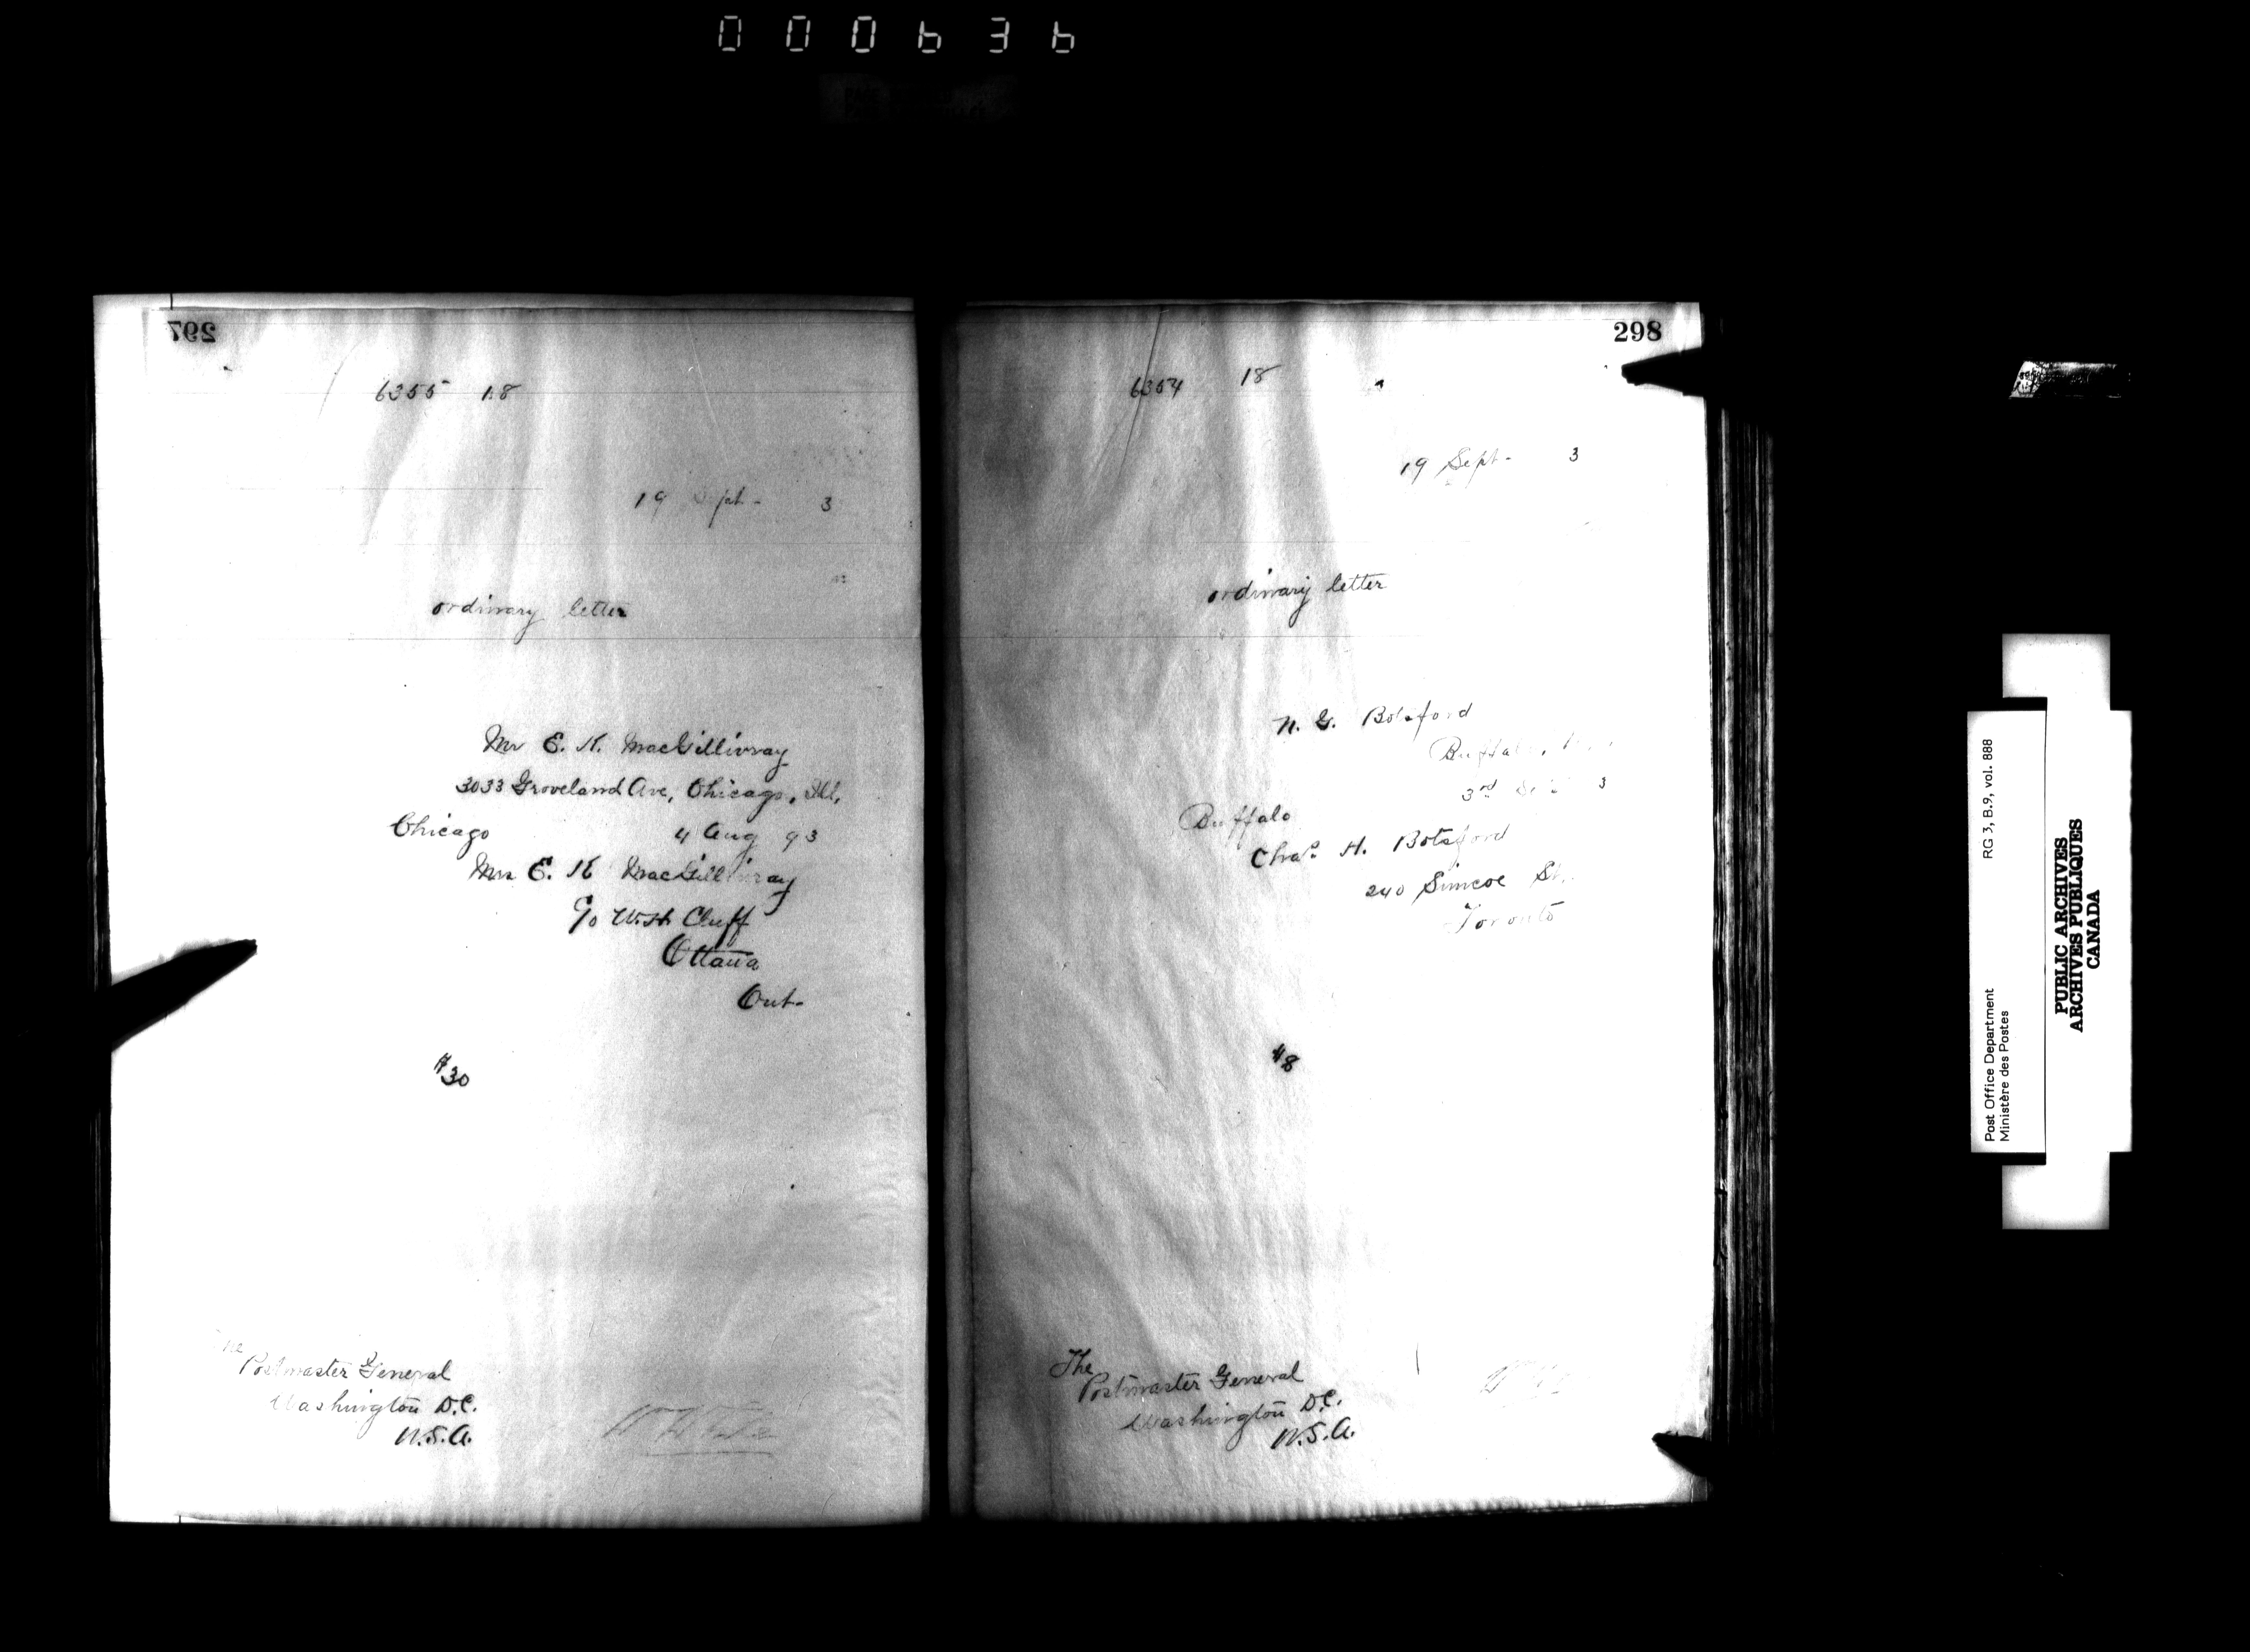 000636
297
6355 18
19 Sept - 3
ordinary letter
Mr E. K. MacGillivray
3033 Groveland Ave, Chicago, Ill,
Chicago 4 Aug 93
Mrs E. K MacGillivray
c/o W.H Cluff
Ottawa
Ont-
$30
The
Postmaster General
Washington D.C.
U.S.A.
298
6354 18
19 Sept - 3
ordinary letter
N. G. Botsford
Buffalo,
3rd Sept 3
Buffalo
Chas. H. Botsford
240 Simcoe St.
Toronto
$8
The
Postmaster General
Washington D.C.
U.S.A.
Post Office Department
Ministère des Postes
RG 3, B.9, vol. 888
PUBLIC ARCHIVES
ARCHIVES PUBLIQUES
CANADA